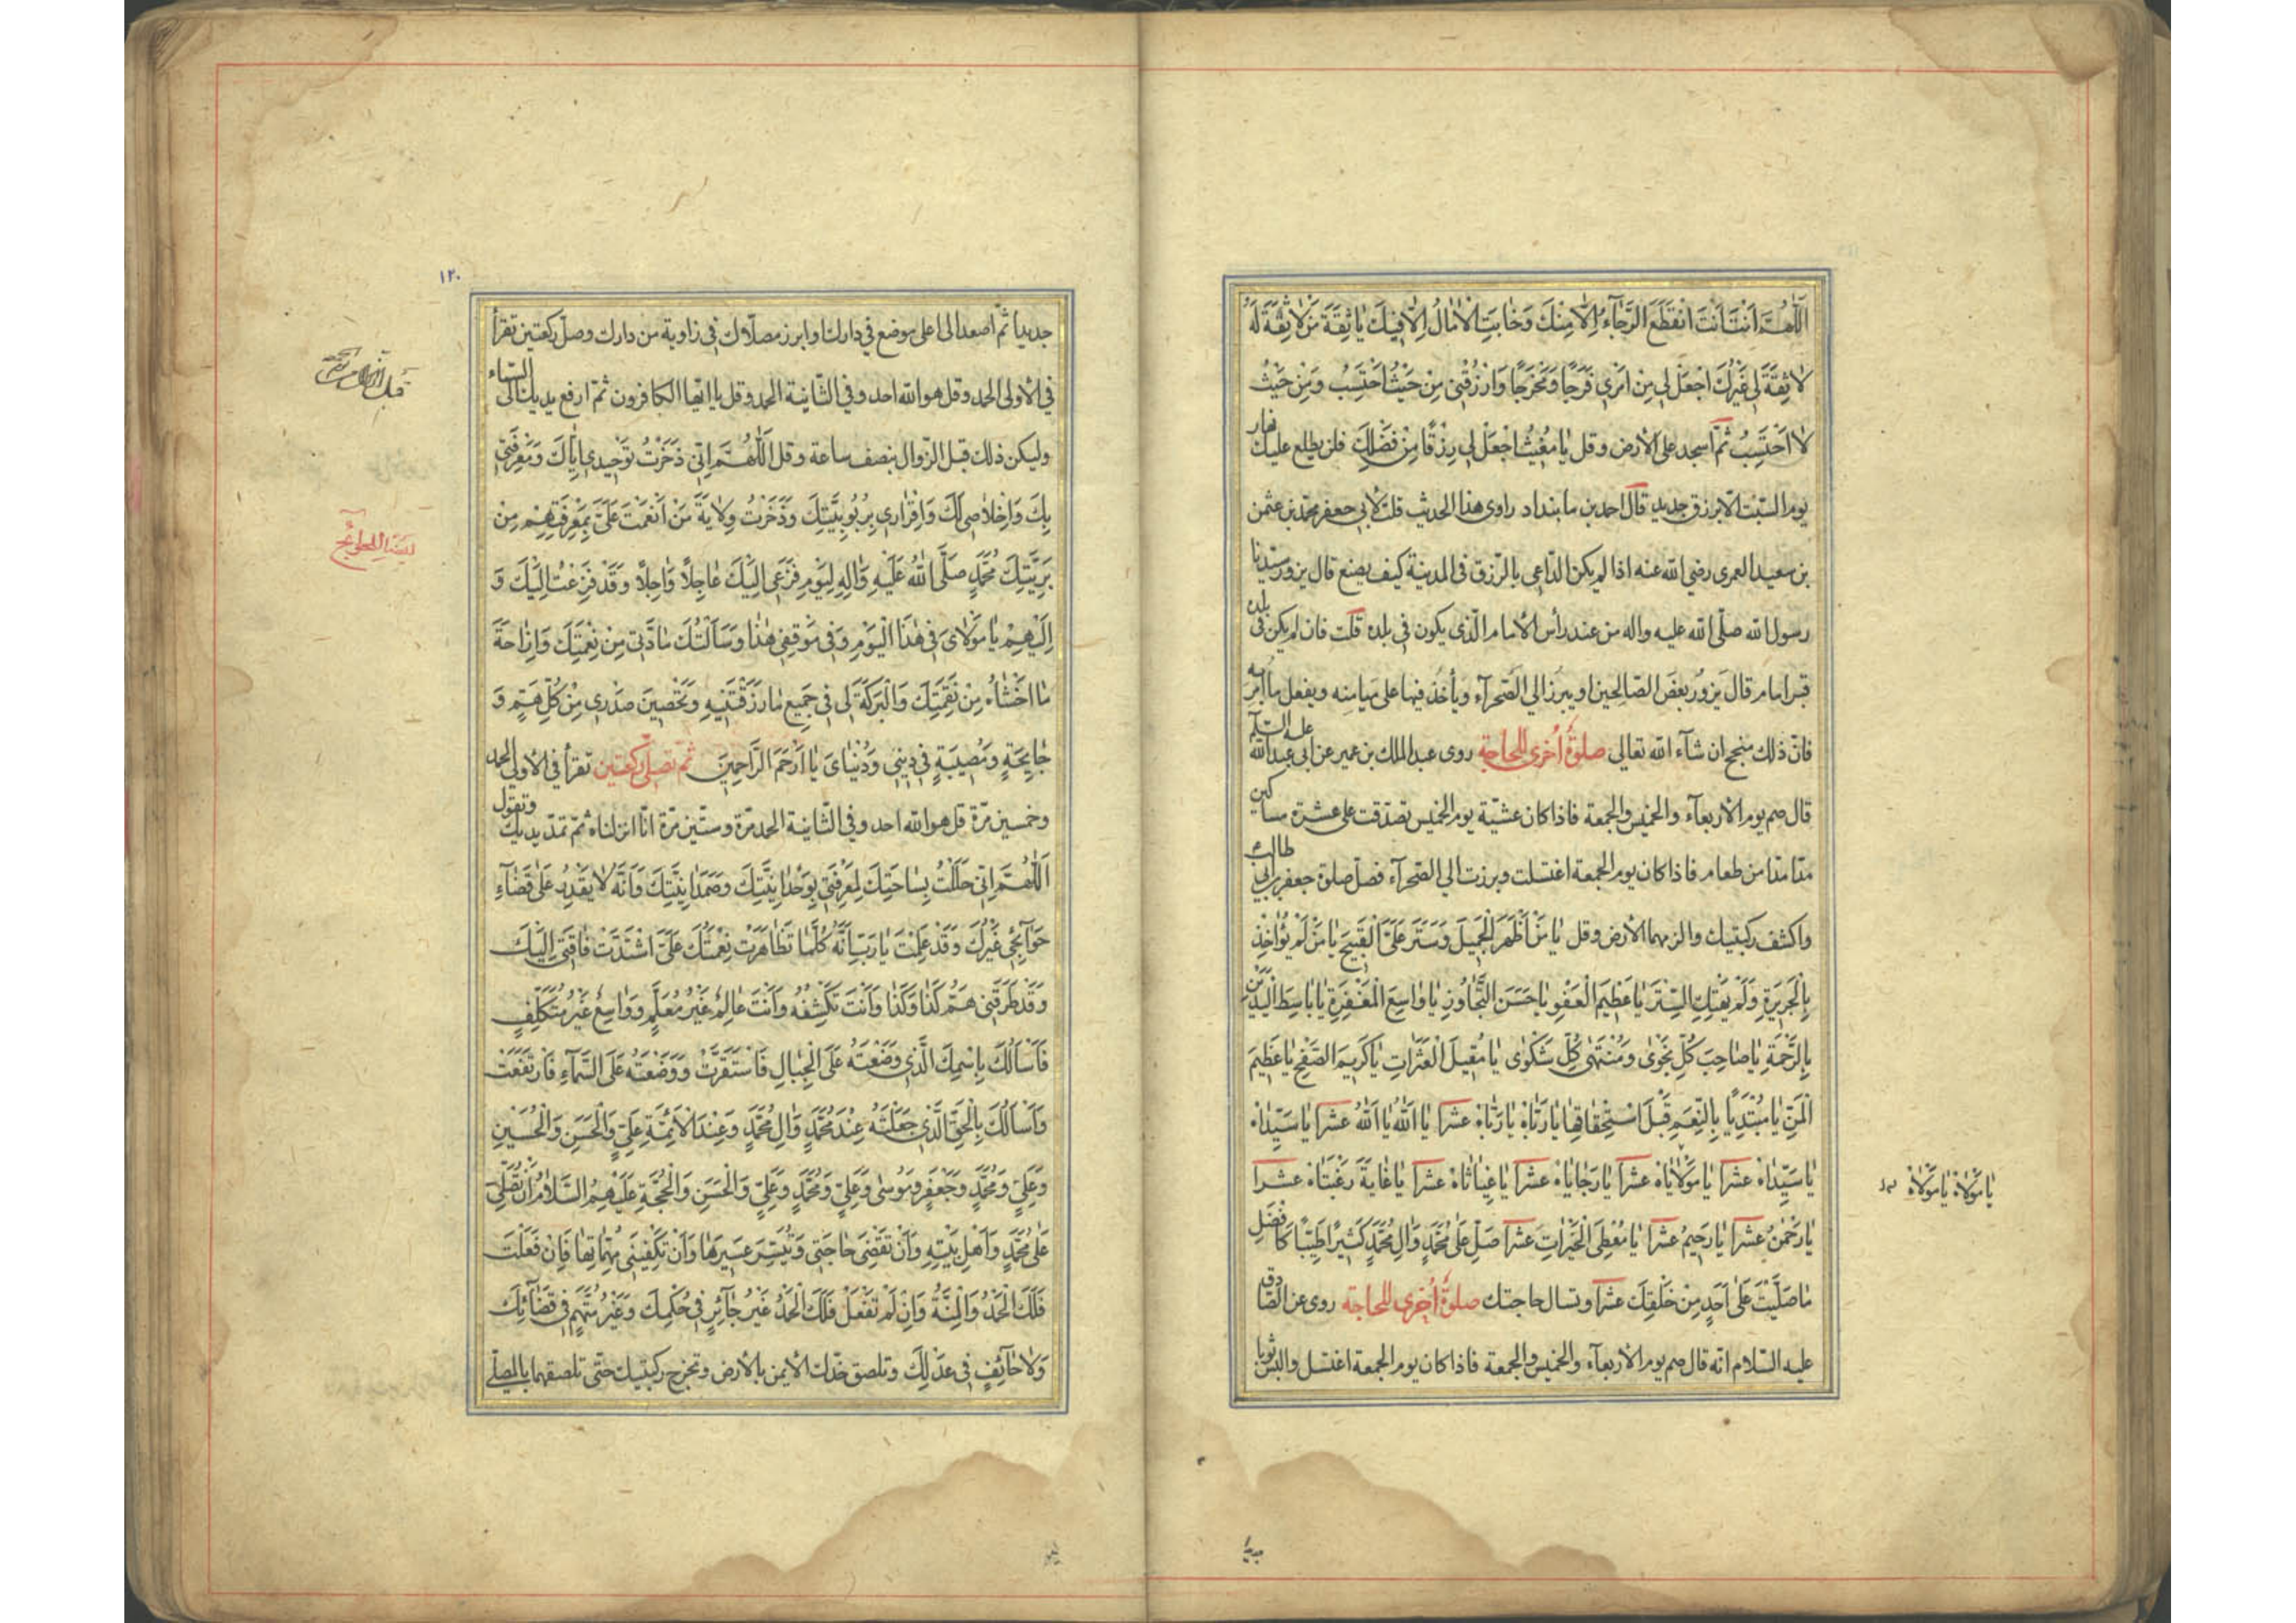 اَللّٰهُمَّ اَنْتَ اَنْتَ انْقَطَعَ الرَّجَاءُ اِلَّا مِنْكَ وَخَابَتِ الْاٰمَالُ اِلَّا فِيكَ يَا ثِقَةَ مَنْ لَا ثِقَةَ لَهُ
لَا ثِقَةَ لِي غَيْرُكَ اجْعَلْ لِي مِنْ اَمْرِي فَرَجًا وَمَخْرَجًا وَارْزُقْنِي مِنْ حَيْثُ اَحْتَسِبُ وَمِنْ حَيْثُ
لَا اَحْتَسِبُ ثمّ اسجد على الارض وقل يَا مُغِيثُ اجْعَلْ لِي رِزْقًا مِنْ فَضْلِكَ فلن يطلع عليك نهار
يوم السّبت الّا برزق جديد قال احمد بن مابنداد راوى هذا الحديث قلت لابى جعفر محمّد بن عثمن
بن سعيد العمرى رضى الله عنه اذا لم يكن الدّاعى بالرّزق فى المدينة كيف يصنع قال يزور سيّدنا
رسول الله صلّى الله عليه واله من عند رأس الامام الّذى يكون فى بلده قلت فان لم يكن فى بلده
قبر امام قال يزور بعض الصّالحين او يبرز الى الصّحرآء ويأخذ فيها على ميامنه ويفعل ما امر به
فانّ ذلك منجح ان شآء الله تعالى صلوة اُخرى للحاجة روى عبد الملك بن عمير عن ابى عبد الله عليه السّلم
قال صم يوم الاربعآء والخميس والجمعة فاذا كان عشيّة يوم الخميس تصدّقت على عشرة مساكين
مدّا مدّا من طعام فاذا كان يوم الجمعة اغتسلت وبرزت الى الصّحرآء فصلّ صلوة جعفر بن ابى طالب
واكشف ركبتيك والزمهما الارض وقل يَا مَنْ اَظْهَرَ الْجَمِيلَ وَسَتَرَ عَلَيَّ الْقَبِيحَ يَا مَنْ لَمْ يُؤَاخِذْ
بِالْجَرِيرَةِ وَلَمْ يَهْتِكِ السِّتْرَ يَا عَظِيمَ الْعَفْوِ يَا حَسَنَ التَّجَاوُزِ يَا وَاسِعَ الْمَغْفِرَةِ يَا بَاسِطَ الْيَدَيْنِ
بِالرَّحْمَةِ يَا صَاحِبَ كُلِّ نَجْوٰى وَمُنْتَهٰى كُلِّ شَكْوٰى يَا مُقِيلَ الْعَثَرَاتِ يَا كَرِيمَ الصَّفْحِ يَا عَظِيمَ
الْمَنِّ يَا مُبْتَدِيًا بِالنِّعَمِ قَبْلَ اسْتِحْقَاقِهَا يَا رَبَّاهُ يَا رَبَّاهُ عشرا يَا اَللّٰهُ يَا اَللّٰهُ عشرا يَا سَيِّدَاهُ
يَا سَيِّدَاهُ عشرا يَا مَوْلَايَاهُ عشرا يَا رَجَايَاهُ عشرا يَا غِيَاثَاهُ عشرا يَا غَايَةَ رَغْبَتَاهُ عشرا
يَا مَوْلَاهُ يَا مَوْلَاهُ
يَا رَحْمٰنُ عشرا يَا رَحِيمُ عشرا يَا مُعْطِيَ الْخَيْرَاتِ عشرا صَلِّ عَلٰى مُحَمَّدٍ وَاٰلِ مُحَمَّدٍ كَثِيرًا طَيِّبًا كَاَفْضَلِ
مَا صَلَّيْتَ عَلٰى اَحَدٍ مِنْ خَلْقِكَ عشرا وتسال حاجتك صلوة اُخرى للحاجة روى عن الصّادق
عليه السّلام انّه قال صم يوم الاربعآء والخميس والجمعة فاذا كان يوم الجمعة اغتسل والبس ثوبا
١٢٠
جديدا ثمّ اصعد الى اعلى موضع فى دارك وابرز مصلّاك فى زاوية من دارك وصلّ ركعتين تقرأ
فى الاولى الحمد وقل هو الله احد وفى الثّانية الحمد وقل يا ايّها الكافرون ثمّ ارفع يديك الى السّماء
وليكن ذلك قبل الزّوال بنصف ساعة وقل اَللّٰهُمَّ اِنّي ذَخَرْتُ تَوْحِيدي اِيَّاكَ وَمَعْرِفَتي
بِكَ وَاِخْلَاصي لَكَ وَاِقْرَاري بِرُبُوبِيَّتِكَ وَذَخَرْتُ وِلَايَةَ مَنْ اَنْعَمْتَ عَلَيَّ بِمَعْرِفَتِهِمْ مِنْ
بَرِيَّتِكَ مُحَمَّدٍ صَلَّى اللهُ عَلَيْهِ وَاٰلِهِ لِيَوْمِ فَزَعي اِلَيْكَ عَاجِلًا وَاٰجِلًا وَقَدْ فَزِعْتُ اِلَيْكَ وَ
اِلَيْهِمْ يَا مَوْلَايَ في هٰذَا الْيَوْمِ وَفي مَوْقِفي هٰذَا وَسَاَلْتُكَ مَادَّتي مِنْ نِعْمَتِكَ وَاِزَاحَةَ
مَا اَخْشَاهُ مِنْ نَقِمَتِكَ وَالْبَرَكَةَ لي في جَميعِ مَا رَزَقْتَنيهِ وَتَحْصينَ صَدْري مِنْ كُلِّ هَمٍّ وَ
جَايِحَةٍ وَمُصيبَةٍ في ديني وَدُنْيَايَ يَا اَرْحَمَ الرَّاحِمينَ ثمّ تصلّى ركعتين تقرأ فى الاولى الحمد
وخمسين مرّة قل هو الله احد وفى الثّانية الحمد مرّة وستّين مرّة انّا انزلناه ثمّ تمدّ يديك وتقول
اَللّٰهُمَّ اِنّي حَلَلْتُ بِسَاحَتِكَ لِمَعْرِفَتي بِوَحْدَانِيَّتِكَ وَصَمَدَانِيَّتِكَ وَاَنَّهُ لَا يَقْدِرُ عَلٰى قَضَآءِ
حَوَآئِجي غَيْرُكَ وَقَدْ عَلِمْتَ يَا رَبِّ اَنَّهُ كُلَّمَا تَظَاهَرَتْ نِعْمَتُكَ عَلَيَّ اشْتَدَّتْ فَاقَتي اِلَيْكَ
وَقَدْ طَرَقَني هَمُّ كَذَا وَكَذَا وَاَنْتَ تَكْشِفُهُ وَاَنْتَ عَالِمٌ غَيْرُ مُعَلَّمٍ وَوَاسِعٌ غَيْرُ مُتَكَلِّفٍ
فَاَسْاَلُكَ بِاسْمِكَ الَّذي وَضَعْتَهُ عَلَى الْجِبَالِ فَاسْتَقَرَّتْ وَوَضَعْتَهُ عَلَى السَّمَآءِ فَارْتَفَعَتْ
وَاَسْاَلُكَ بِالْحَقِّ الَّذي جَعَلْتَهُ عِنْدَ مُحَمَّدٍ وَاٰلِ مُحَمَّدٍ وَعِنْدَ الْاَئِمَّةِ عَلِيٍّ وَالْحَسَنِ وَالْحُسَيْنِ
وَعَلِيٍّ وَمُحَمَّدٍ وَجَعْفَرٍ وَمُوسٰى وَعَلِيٍّ وَمُحَمَّدٍ وَعَلِيٍّ وَالْحَسَنِ وَالْحُجَّةِ عَلَيْهِمُ السَّلَامُ اَنْ تُصَلِّيَ
عَلٰى مُحَمَّدٍ وَاَهْلِ بَيْتِهِ وَاَنْ تَقْضِيَ حَاجَتي وَتُيَسِّرَ عَسيرَهَا وَاَنْ تَكْفِيَني مُهِمَّاتِهَا فَاِنْ فَعَلْتَ
فَلَكَ الْحَمْدُ وَالْمِنَّةُ وَاِنْ لَمْ تَفْعَلْ فَلَكَ الْحَمْدُ غَيْرُ جَآئِرٍ في حُكْمِكَ وَغَيْرُ مُتَّهَمٍ في قَضَآئِكَ
وَلَا حَآئِفٍ في عَدْلِكَ وتلصق خدّك الايمن بالارض وتخرج ركبتيك حتّى تلصقهما بالمصلّى